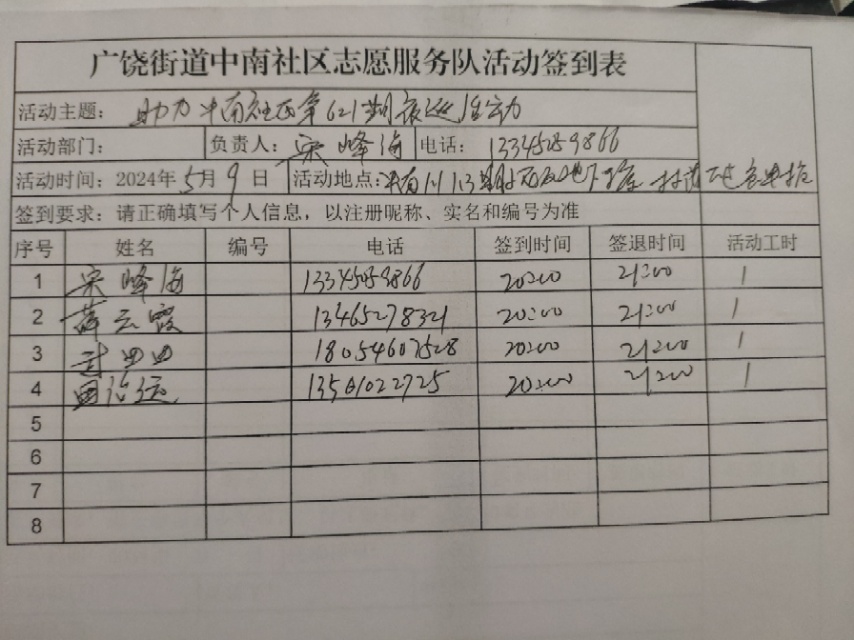 广饶街道中南社区志愿服务队活动签到表
活动主题: 助力中南社区第621期夜巡活动
活动部门: 负责人: 宋峰海 电话: 13345259866
活动时间: 2024年5月9日 活动地点: 中南 1期
签到要求: 请正确填写个人信息, 以注册昵称、实名和编号为准
序号 姓名 编号 电话 签到时间 签退时间 活动工时
1 宋峰海 13345259866 20:00 21:00 1
2 薛云霞 13465278321 20:00 21:00 1
3 封四四 18054607528 20:00 21:00 1
4 国治远 13561022725 20:00 21:00 1
5
6
7
8